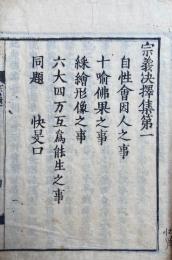 宗義決擇集第一
自性會因人之事
十喻佛果之事
綵繪形像之事
六大四万互爲能生之事
同題　快旻口